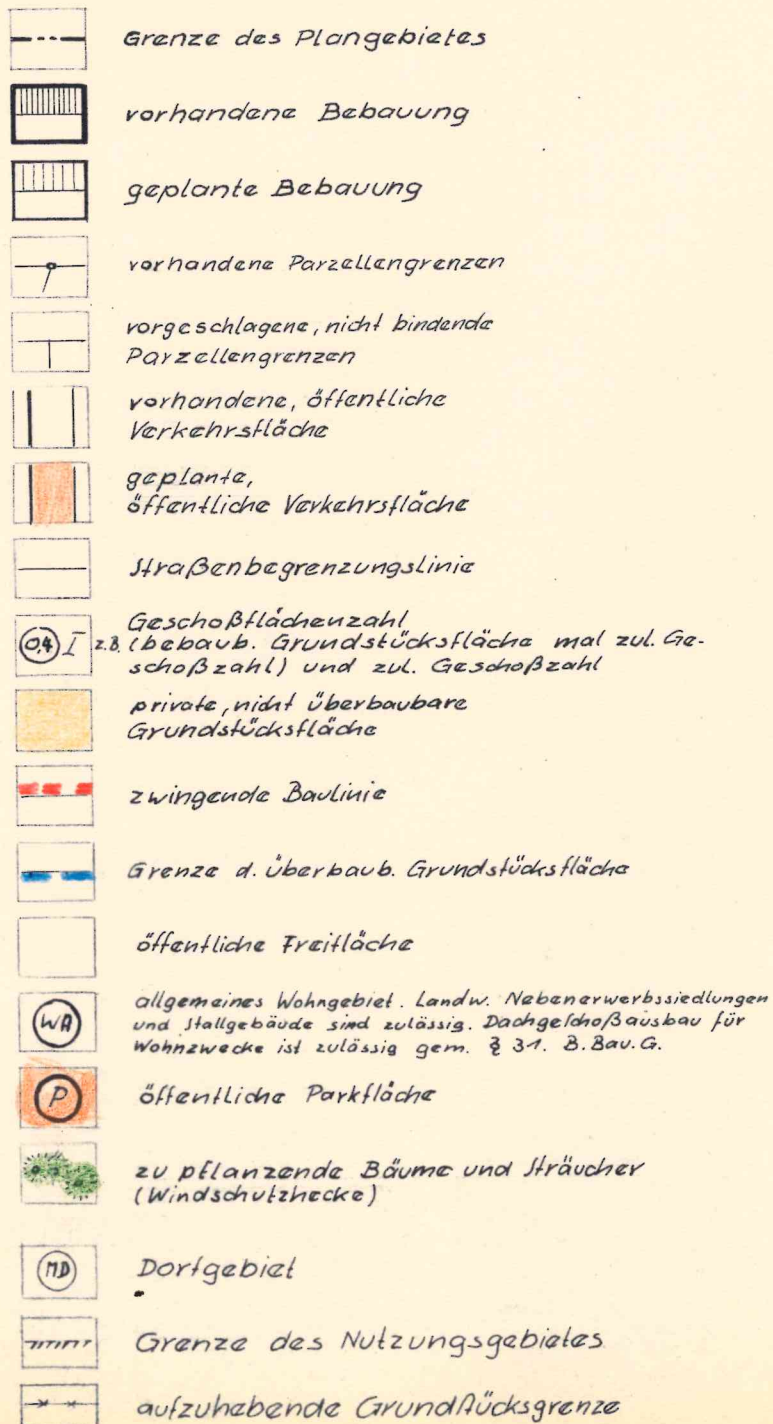 Grenze des Plangebietes
vorhandene Bebauung
geplante Bebauung
vorhandene Parzellengrenzen
vorgeschlagene, nicht bindende
Parzellengrenzen
vorhandene, öffentliche
Verkehrsfläche
geplante,
öffentliche Verkehrsfläche
Straßenbegrenzungslinie
Geschoßflächenzahl
0,4 I z.B. (bebaub. Grundstücksfläche mal zul. Ge-
schoßzahl) und zul. Geschoßzahl
private, nicht überbaubare
Grundstücksfläche
zwingende Baulinie
Grenze d. überbaub. Grundstücksfläche
öffentliche Freifläche
WA allgemeines Wohngebiet. Landw. Nebenerwerbssiedlungen
und Stallgebäude sind zulässig. Dachgeschoßausbau für
Wohnzwecke ist zulässig gem. § 31. B.Bau.G.
P öffentliche Parkfläche
zu pflanzende Bäume und Sträucher
(Windschutzhecke)
MD Dorfgebiet
Grenze des Nutzungsgebietes
aufzuhebende Grundstücksgrenze